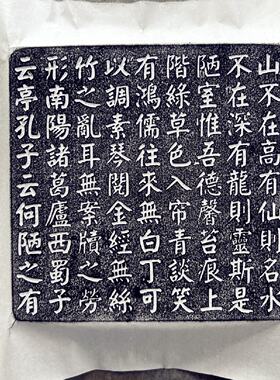 山不在高有仙則名水
不在深有龍則靈斯是
陋室惟吾德馨苔痕上
階綠草色入帘青談笑
有鴻儒往來無白丁可
以調素琴閱金經無絲
竹之亂耳無案牘之勞
形南陽諸葛廬西蜀子
云亭孔子云何陋之有